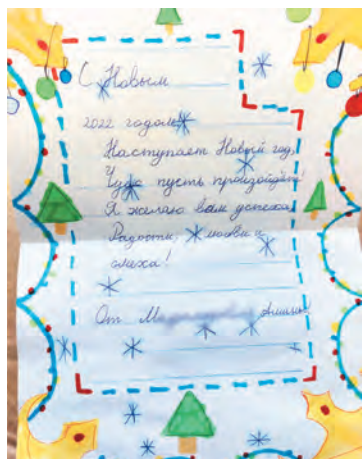 С Новым
2022 годом!
Наступает Новый год,
Чудо пусть произойдёт!
Я желаю вам успеха,
Радости, любви и
смеха!
От